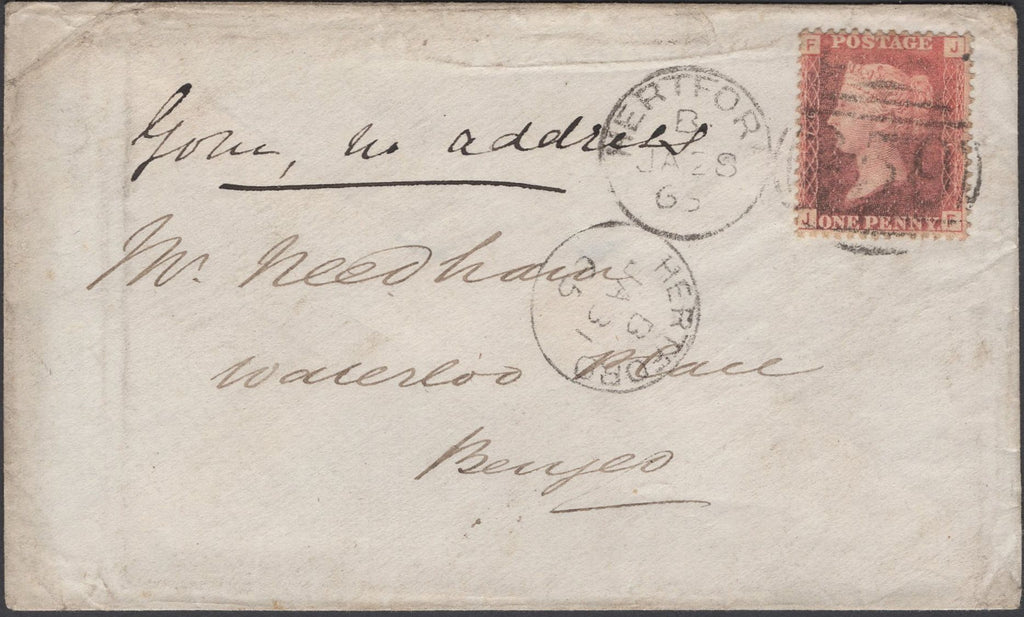 F POSTAGE J
J ONE PENNY. F
HERTFORD
B
JA 28
65
Gone, no address
Mr. Needham
HERTFORD
B
JA 31
65
Waterloo Place
Bengeo